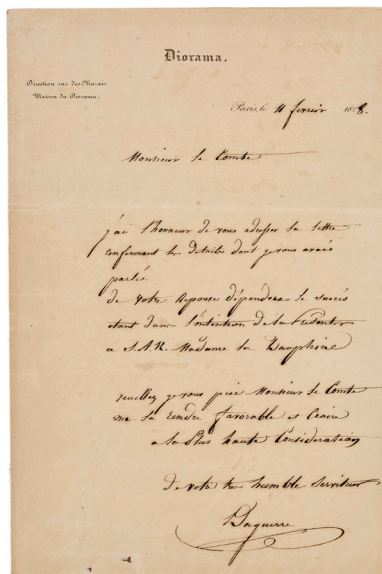 Diorama.
Direction rue des Marais
Maison du Diorama.
Paris, le 4 fevrier 1828.
Monsieur le Comte
j'ai l'honneur de vous adresser la lettre
confermant les details dont je vous avais
parlés.
de votre Reponse dépendera le succès
etant dans l'intention de la
a S.A.R. Madame la Dauphine
veuillez je vous prie Monsieur le Comte
me la Rendre favorable et Croire
a la Plus haute Consideration
de votre tres humble serviteur
Daguerre